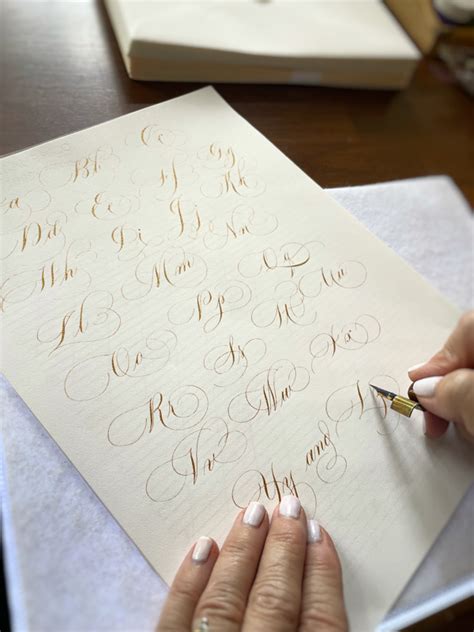 a Bb Cc
Dd Ee Ff Gg
Hh Ii Jj Kk
Ll Mm Nn
Oo Pp Qq
Rr Ss Tt Uu
Vv Ww Xx
Yy and Z